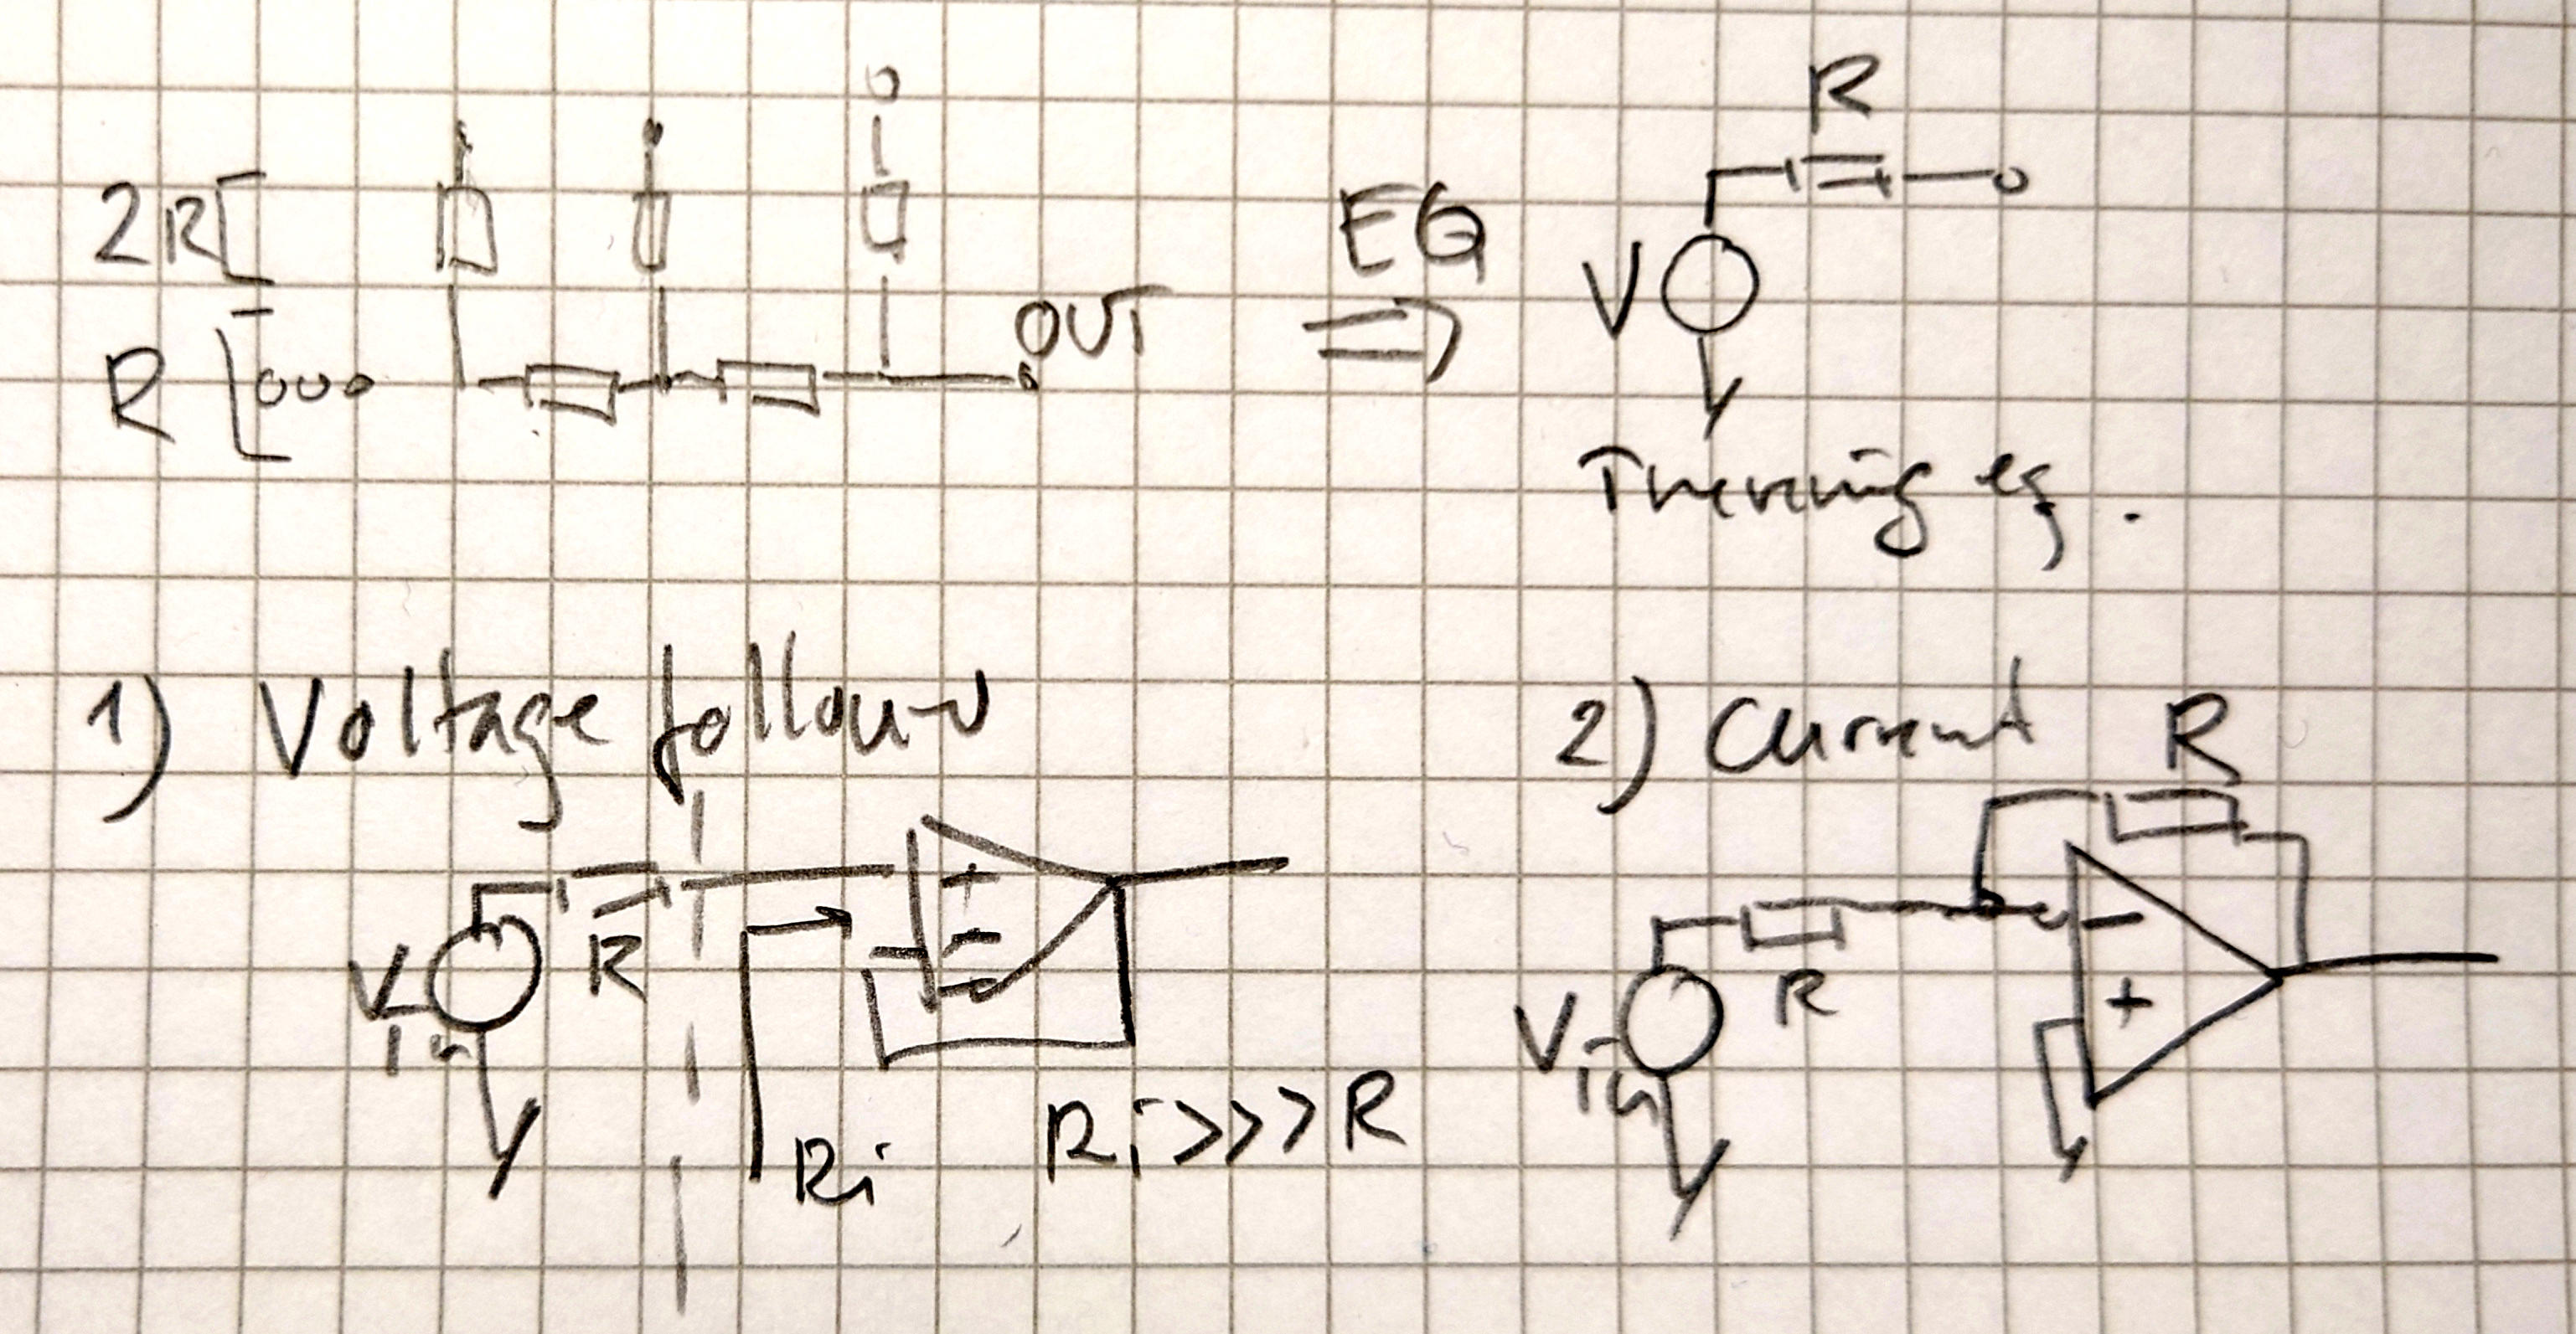 2R
R
OUT
EQ
V
R
Thevenin eq.
1) Voltage follower
Vin
R
+
-
Ri
Ri>>>R
2) Current
R
Vin
R
-
+